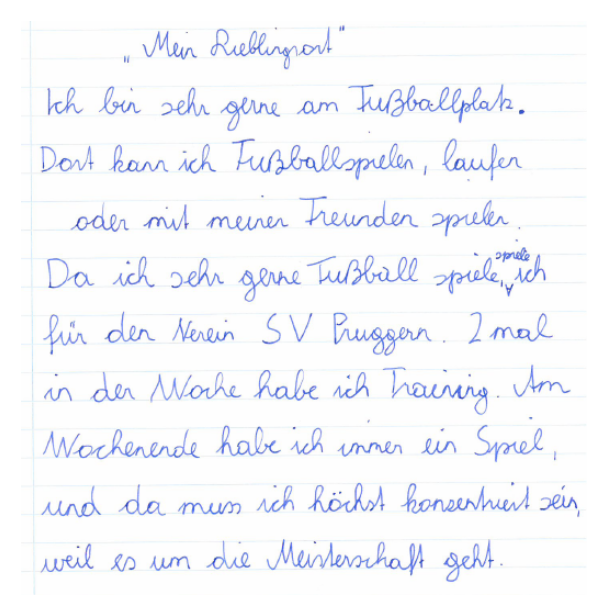 „Mein Lieblingsort"
Ich bin sehr gerne am Fußballplatz.
Dort kann ich Fußballspielen, laufen
oder mit meinen Freunden spielen.
Da ich sehr gerne Fußball spiele, spiele ich
für den Verein SV Pruggern. 2 mal
in der Woche habe ich Training. Am
Wochenende habe ich immer ein Spiel,
und da muss ich höchst konsentriert sein,
weil es um die Meisterschaft geht.